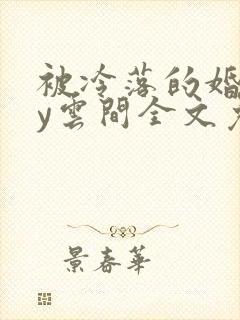 被冷落的婚
y雲間全文
景春華